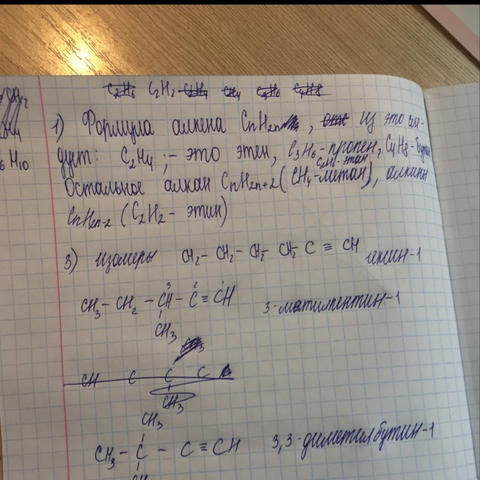 C₂H₂
1) Формула алкена CnH2n, из это сле-
дует: C₂H₄ - это этен, C₃H₆ - пропен, C₄H₈ - бутен
Остальное алкан CnH2n+2 (CH₄ - метан), алкины
CnH2n-2 (C₂H₂ - этин)
3) изомеры CH₃ - CH₂ - CH₂ - CH₂ C ≡ CH гексин-1
CH₃ - CH₂ - CH - C ≡ CH 3-метилпентин-1
CH₃
CH₃
CH₃ - C - C ≡ CH 3,3-диметилбутин-1